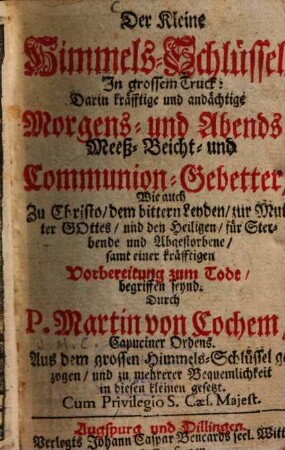 Der Kleine
Himmels-Schlüssel
In grossem Truck:
Darin kräfftige und andächtige
Morgens- und Abends
Meeß- Beicht- und
Communion-Gebetter/
Wie auch
Zu Christo/ dem bittern Leyden/ zur Mut
ter GOttes/ und den Heiligen/ für Ster-
bende und Abgestorbene/
samt einer kräfftigen
Vorbereitung zum Tode/
begriffen seynd.
Durch
P. Martin von Cochem/
Capuciner Ordens.
Aus dem grossen Himmels-Schlüssel ge
zogen/ und zu mehrerer Bequemlichkeit
in diesen kleinen gesetzt.
Cum Privilegio S. Cæs. Majest.
Augspurg und Dillingen.
Verlegts Johann Caspar Bencards seel. Witt